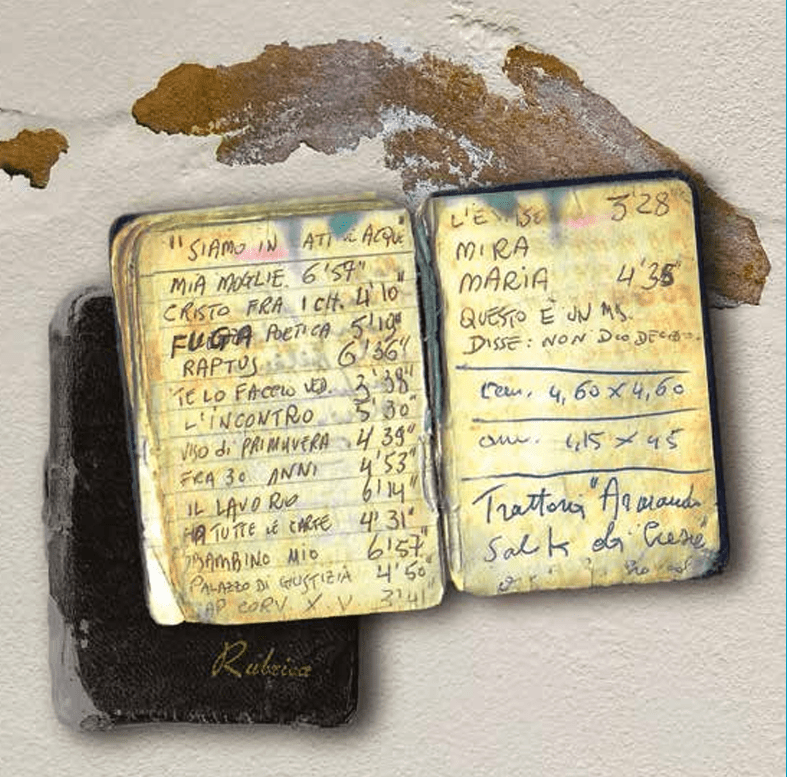 "SIAMO IN ATI E ACQUE"
MIA MOGLIE. 6'57"
CRISTO FRA I CH. 4'10"
FUGA POETICA 5'19"
RAPTUS 6'36"
TE LO FACCIO VED. 3'38"
L'INCONTRO 5'30"
VISO di PRIMAVERA 4'39"
FRA 30 ANNI 4'53"
IL LAVORO 6'14"
HA TUTTE LE CARTE 4'31"
BAMBINO MIO 6'57"
PALAZZO DI GIUSTIZIA 4'50"
CORV X V 3'41"
L'E 328
MIRA
MARIA 4'35"
QUESTO È UN MS.
DISSE: NON DIO DECIDO.
cem. 4,60 x 4,60
cm. 1,15 x 45
Trattoria "Armando"
Salita di
Rubrica